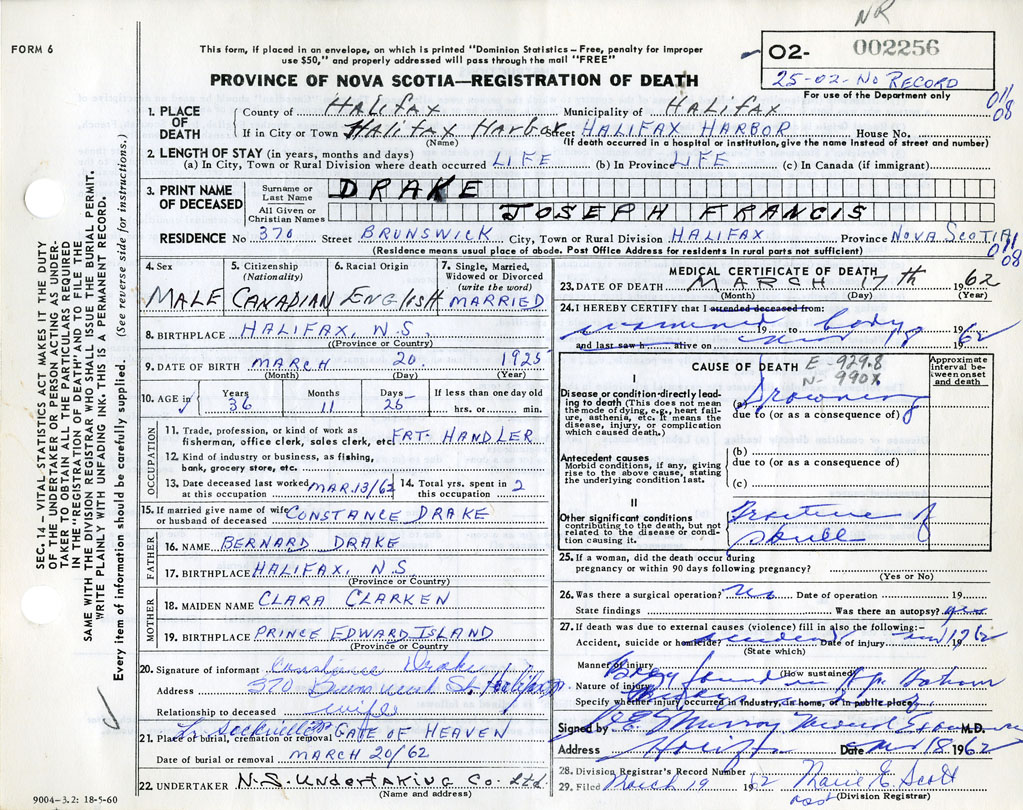 NR
FORM 6
This form, if placed in an envelope, on which is printed "Dominion Statistics—Free, penalty for improper
use $50," and properly addressed will pass through the mail "FREE"
O2- 002256
25-02-No RECORD
PROVINCE OF NOVA SCOTIA—REGISTRATION OF DEATH
For use of the Department only
011
08
1. PLACE OF DEATH
County of HALIFAX Municipality of HALIFAX
If in City or Town Halifax Harbor Street HALIFAX HARBOR House No.
(Name) (If death occurred in a hospital or institution, give the name instead of street and number)
2. LENGTH OF STAY (in years, months and days)
(a) In City, Town or Rural Division where death occurred LIFE (b) In Province LIFE (c) In Canada (if immigrant)
3. PRINT NAME OF DECEASED
Surname or Last Name DRAKE
All Given or Christian Names JOSEPH FRANCIS
RESIDENCE No 370 Street BRUNSWICK City, Town or Rural Division HALIFAX Province NOVA SCOTIA
(Residence means usual place of abode. Post Office Address for residents in rural parts not sufficient)
011
08
4. Sex 5. Citizenship (Nationality) 6. Racial Origin 7. Single, Married, Widowed or Divorced (write the word)
MALE CANADIAN ENGLISH MARRIED
8. BIRTHPLACE HALIFAX, N.S.
(Province or Country)
9. DATE OF BIRTH MARCH 20 1925
(Month) (Day) (Year)
10. AGE in Years Months Days If less than one day old
36 11 26 hrs. or min.
OCCUPATION
11. Trade, profession, or kind of work as
fisherman, office clerk, sales clerk, etc. FRT. HANDLER
12. Kind of industry or business, as fishing,
bank, grocery store, etc.
13. Date deceased last worked at this occupation MAR.13/62 14. Total yrs. spent in this occupation 2
15. If married give name of wife or husband of deceased CONSTANCE DRAKE
FATHER
16. NAME BERNARD DRAKE
17. BIRTHPLACE HALIFAX, N.S.
(Province or Country)
MOTHER
18. MAIDEN NAME CLARA CLARKEN
19. BIRTHPLACE PRINCE EDWARD ISLAND
(Province or Country
20. Signature of informant Constance Drake
Address 370 Brunswick St. Halifax
Relationship to deceased wife
21. Place of burial, cremation or removal Lr Sackville GATE OF HEAVEN
Date of burial or removal MARCH 20/62
22. UNDERTAKER N.S. Undertaking Co. Ltd.
(Name and address)
9004-3.2: 18-5-60
MEDICAL CERTIFICATE OF DEATH
23. DATE OF DEATH MARCH 17th 1962
(Month) (Day) (Year)
24. I HEREBY CERTIFY that I attended deceased from:
examined 19 to body 19
and last saw h alive on Mar 18 1962
CAUSE OF DEATH E-929.8
N-990X
Approximate interval between onset and death
I
Disease or condition directly leading to death (This does not mean the mode of dying, e.g., heart failure, asthenia, etc. It means the disease, injury, or complication which caused death.)
(a) Drowning
due to (or as a consequence of)
Antecedent causes
Morbid conditions, if any, giving rise to the above cause, stating the underlying condition last.
(b)
due to (or as a consequence of)
(c)
II
Other significant conditions
contributing to the death, but not related to the disease or condition causing it.
Fracture of
skull
25. If a woman, did the death occur during
pregnancy or within 90 days following pregnancy?
(Yes or No)
26. Was there a surgical operation? no Date of operation 19
State findings Was there an autopsy? yes
27. If death was due to external causes (violence) fill in also the following:—
Accident, suicide or homicide? accident Date of injury Mar 17 1962
(State which)
Manner of injury Body found in
(How sustained)
Nature of injury
Specify whether injury occurred in industry, in home, or in public place
Signed by Murray Medical Examiner M.D.
Address Halifax Date Mar 18 1962
28. Division Registrar's Record Number
29. Filed March 19 1962 Marie E. Scott
(Division Registrar)
SEC. 14—VITAL-STATISTICS ACT MAKES IT THE DUTY
OF THE UNDERTAKER OR PERSON ACTING AS UNDER-
TAKER TO OBTAIN ALL THE PARTICULARS REQUIRED
IN THE "REGISTRATION OF DEATH" AND TO FILE THE
SAME WITH THE DIVISION REGISTRAR WHO SHALL ISSUE THE BURIAL PERMIT.
WRITE PLAINLY WITH UNFADING INK. THIS IS A PERMANENT RECORD.
Every item of information should be carefully supplied. (See reverse side for instructions.)